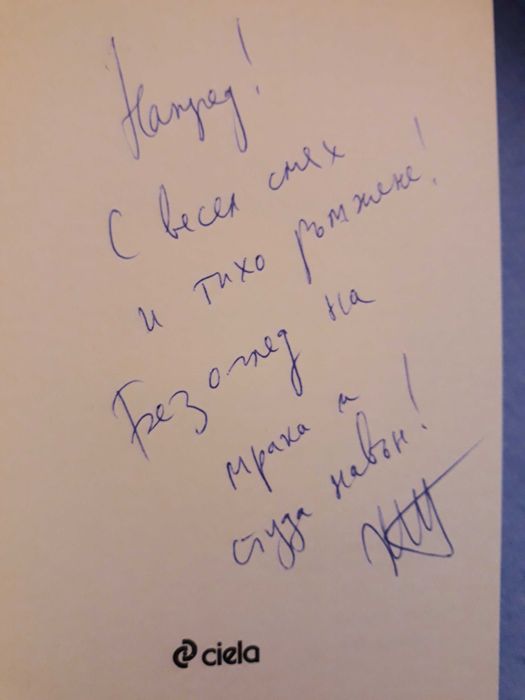 Напред!
С весел смях
и тихо ръмжене!
Без оглед на
мрака и
студа навън!
ciela